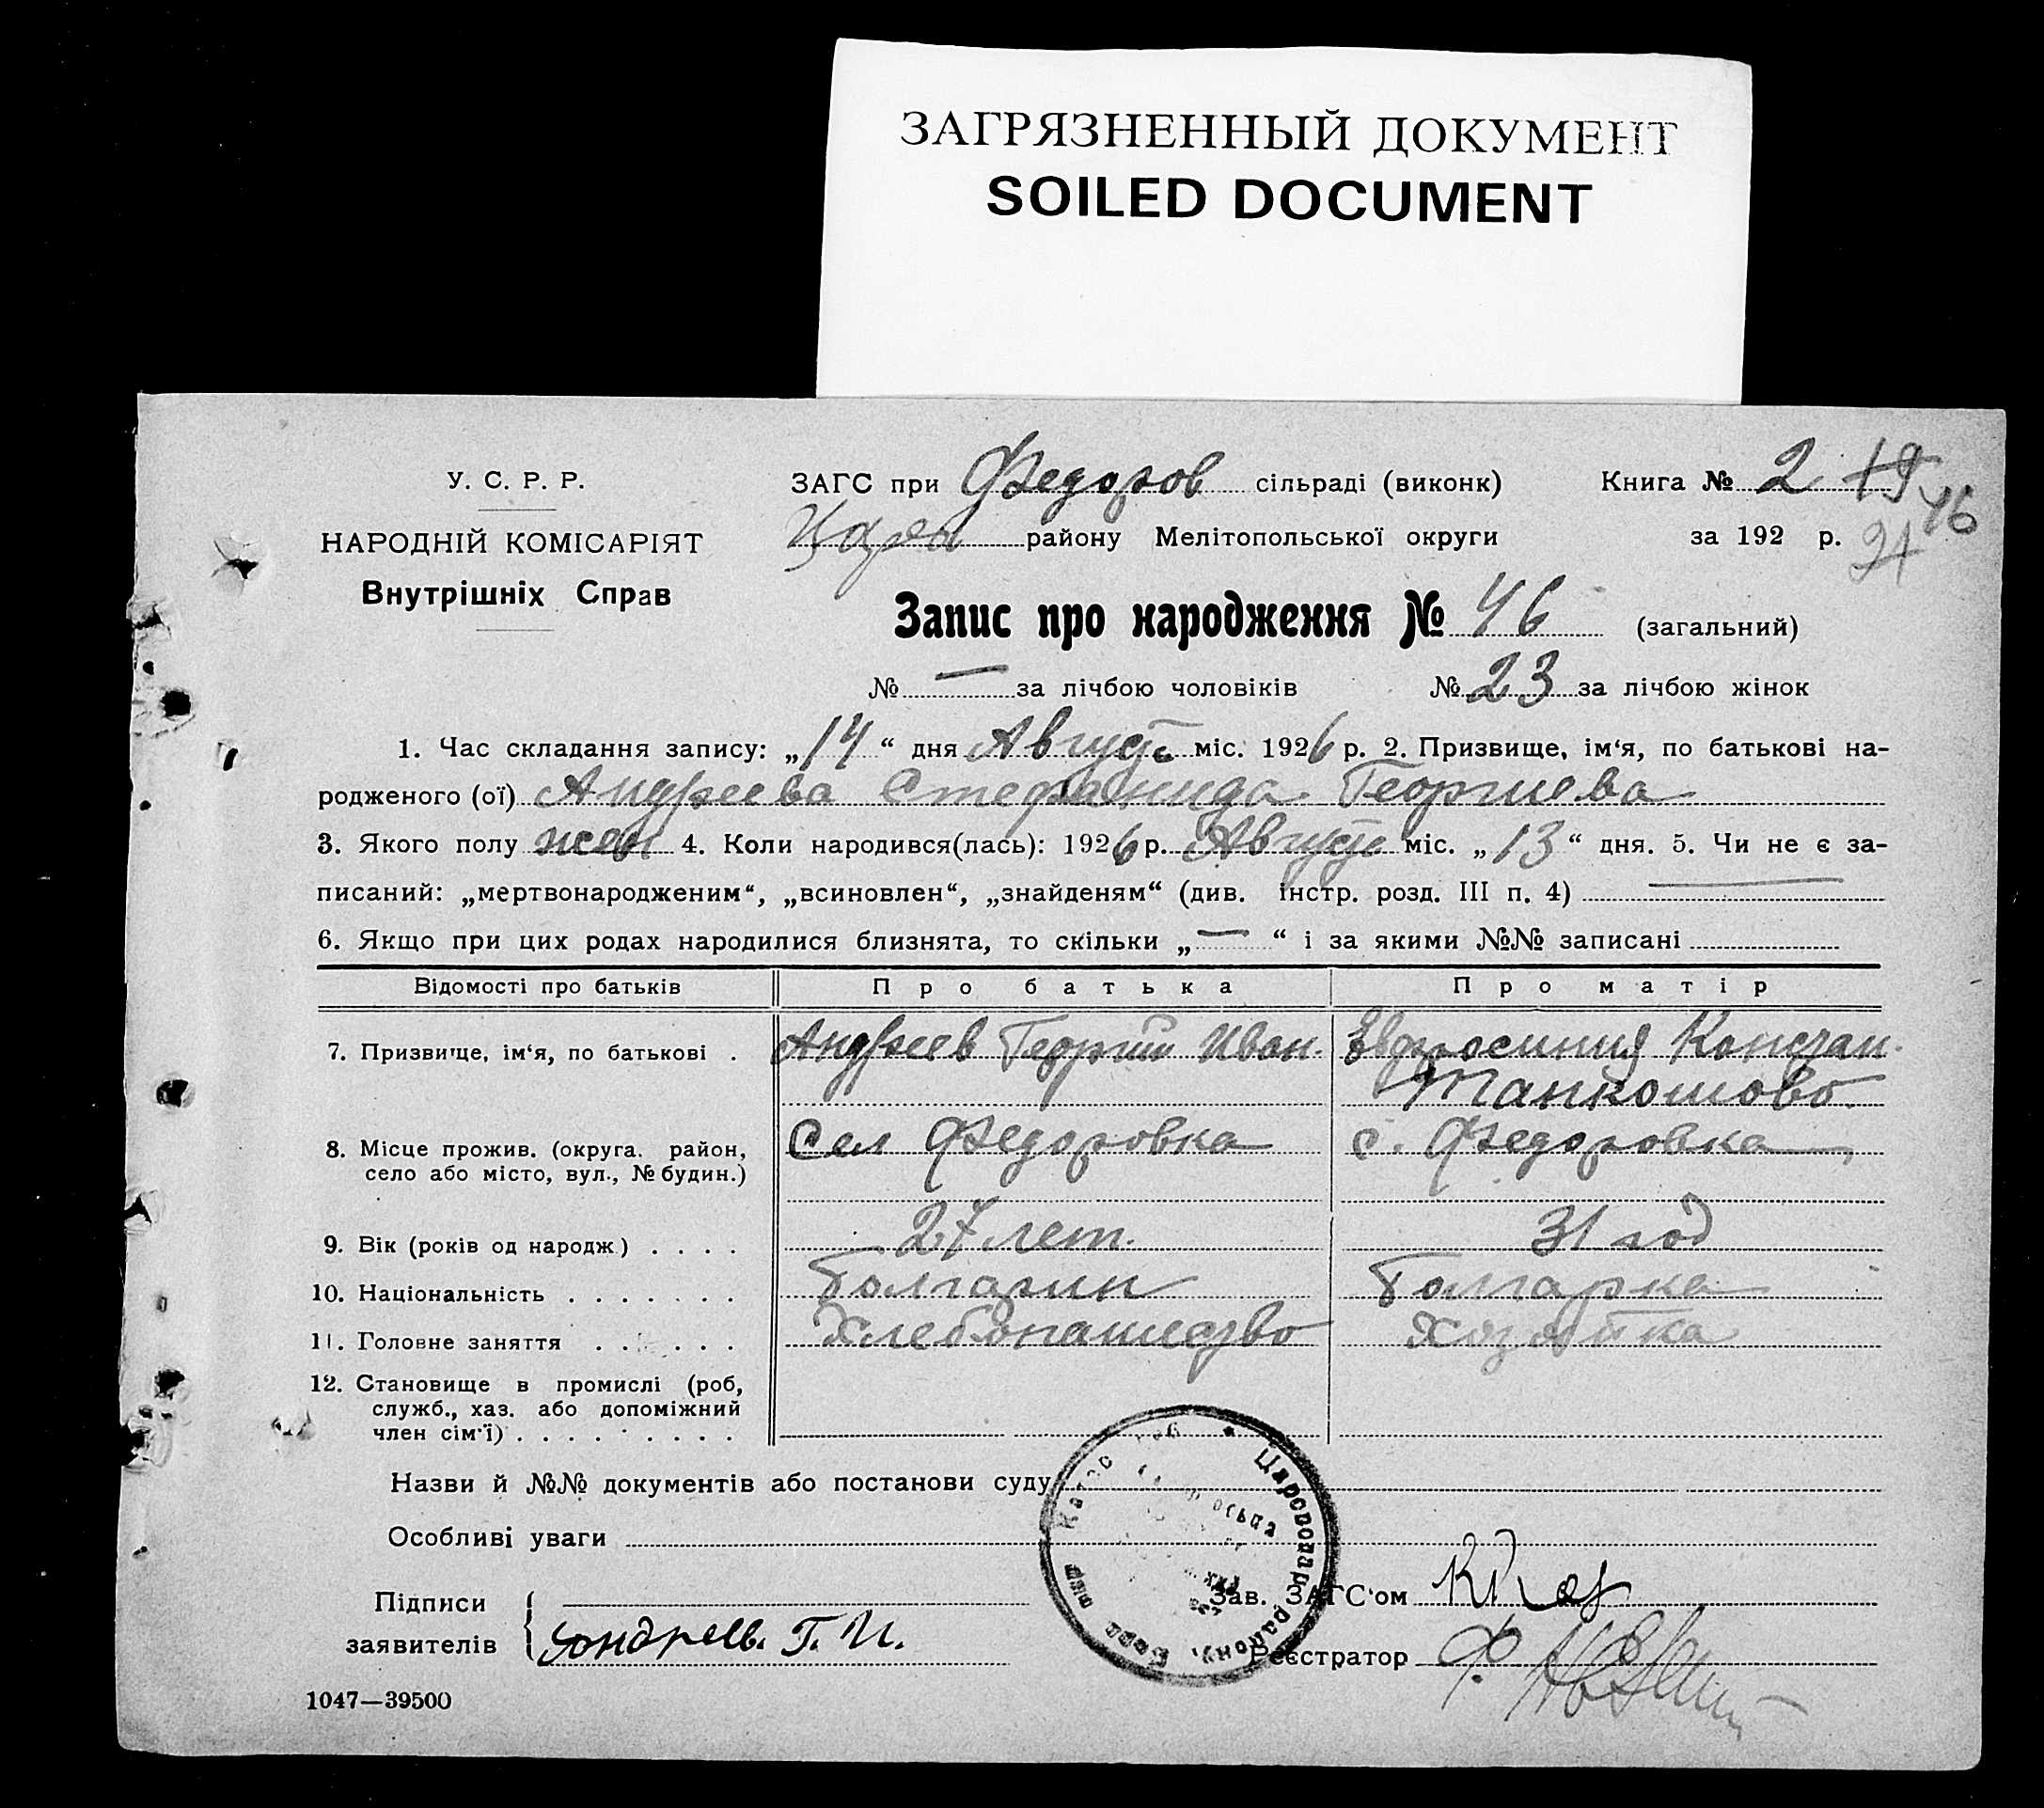 ЗАГРЯЗНЕННЫЙ ДОКУМЕНТ
SOILED DOCUMENT
У. С. Р. Р.
НАРОДНІЙ КОМІСАРІЯТ
Внутрішніх Справ
ЗАГС при Федоров сільраді (виконк)
Царев району Мелітопольської округи
Книга № 2 19
46
за 192 р. 21
Запис про народження № 46 (загальний)
№ — за лічбою чоловіків № 23 за лічбою жінок
1. Час складання запису: „14“ дня Август міс. 1926 р. 2. Призвище, ім‘я, по батькові на-
родженого (ої) Андреева Стефанида Георгиева
3. Якого полу жен 4. Коли народився(лась): 1926 р. Август міс. „13“ дня. 5. Чи не є за-
писаний: „мертвонародженим“, „всиновлен“, „знайденям“ (див. інстр. розд. III п. 4) —
6. Якщо при цих родах народилися близнята, то скільки „—“ і за якими №№ записані
Відомості про батьків Про батька Про матір
7. Призвище, ім‘я, по батькові . Андреев Георгий Иван. Евфросиния Констан.
8. Місце прожив. (округа. район, село або місто, вул., № будин.) Сел Федоровка с. Федоровка
9. Вік (років од народж) . . . . 27 лет. 31 год
10. Національність . . . . . . . Болгарин Болгарка
11. Головне заняття . . . . . . Хлебопашество Хозяйка
12. Становище в промислі (роб,
служб., хаз. або допоміжний
член сім‘ї) . . . . . . . . .
Назви й №№ документів або постанови суду
Особливі уваги
Царсводар району,
Підписи
заявителів
Андреев. Г. И.
Зав. ЗАГС‘ом
Реєстратор
1047—39500